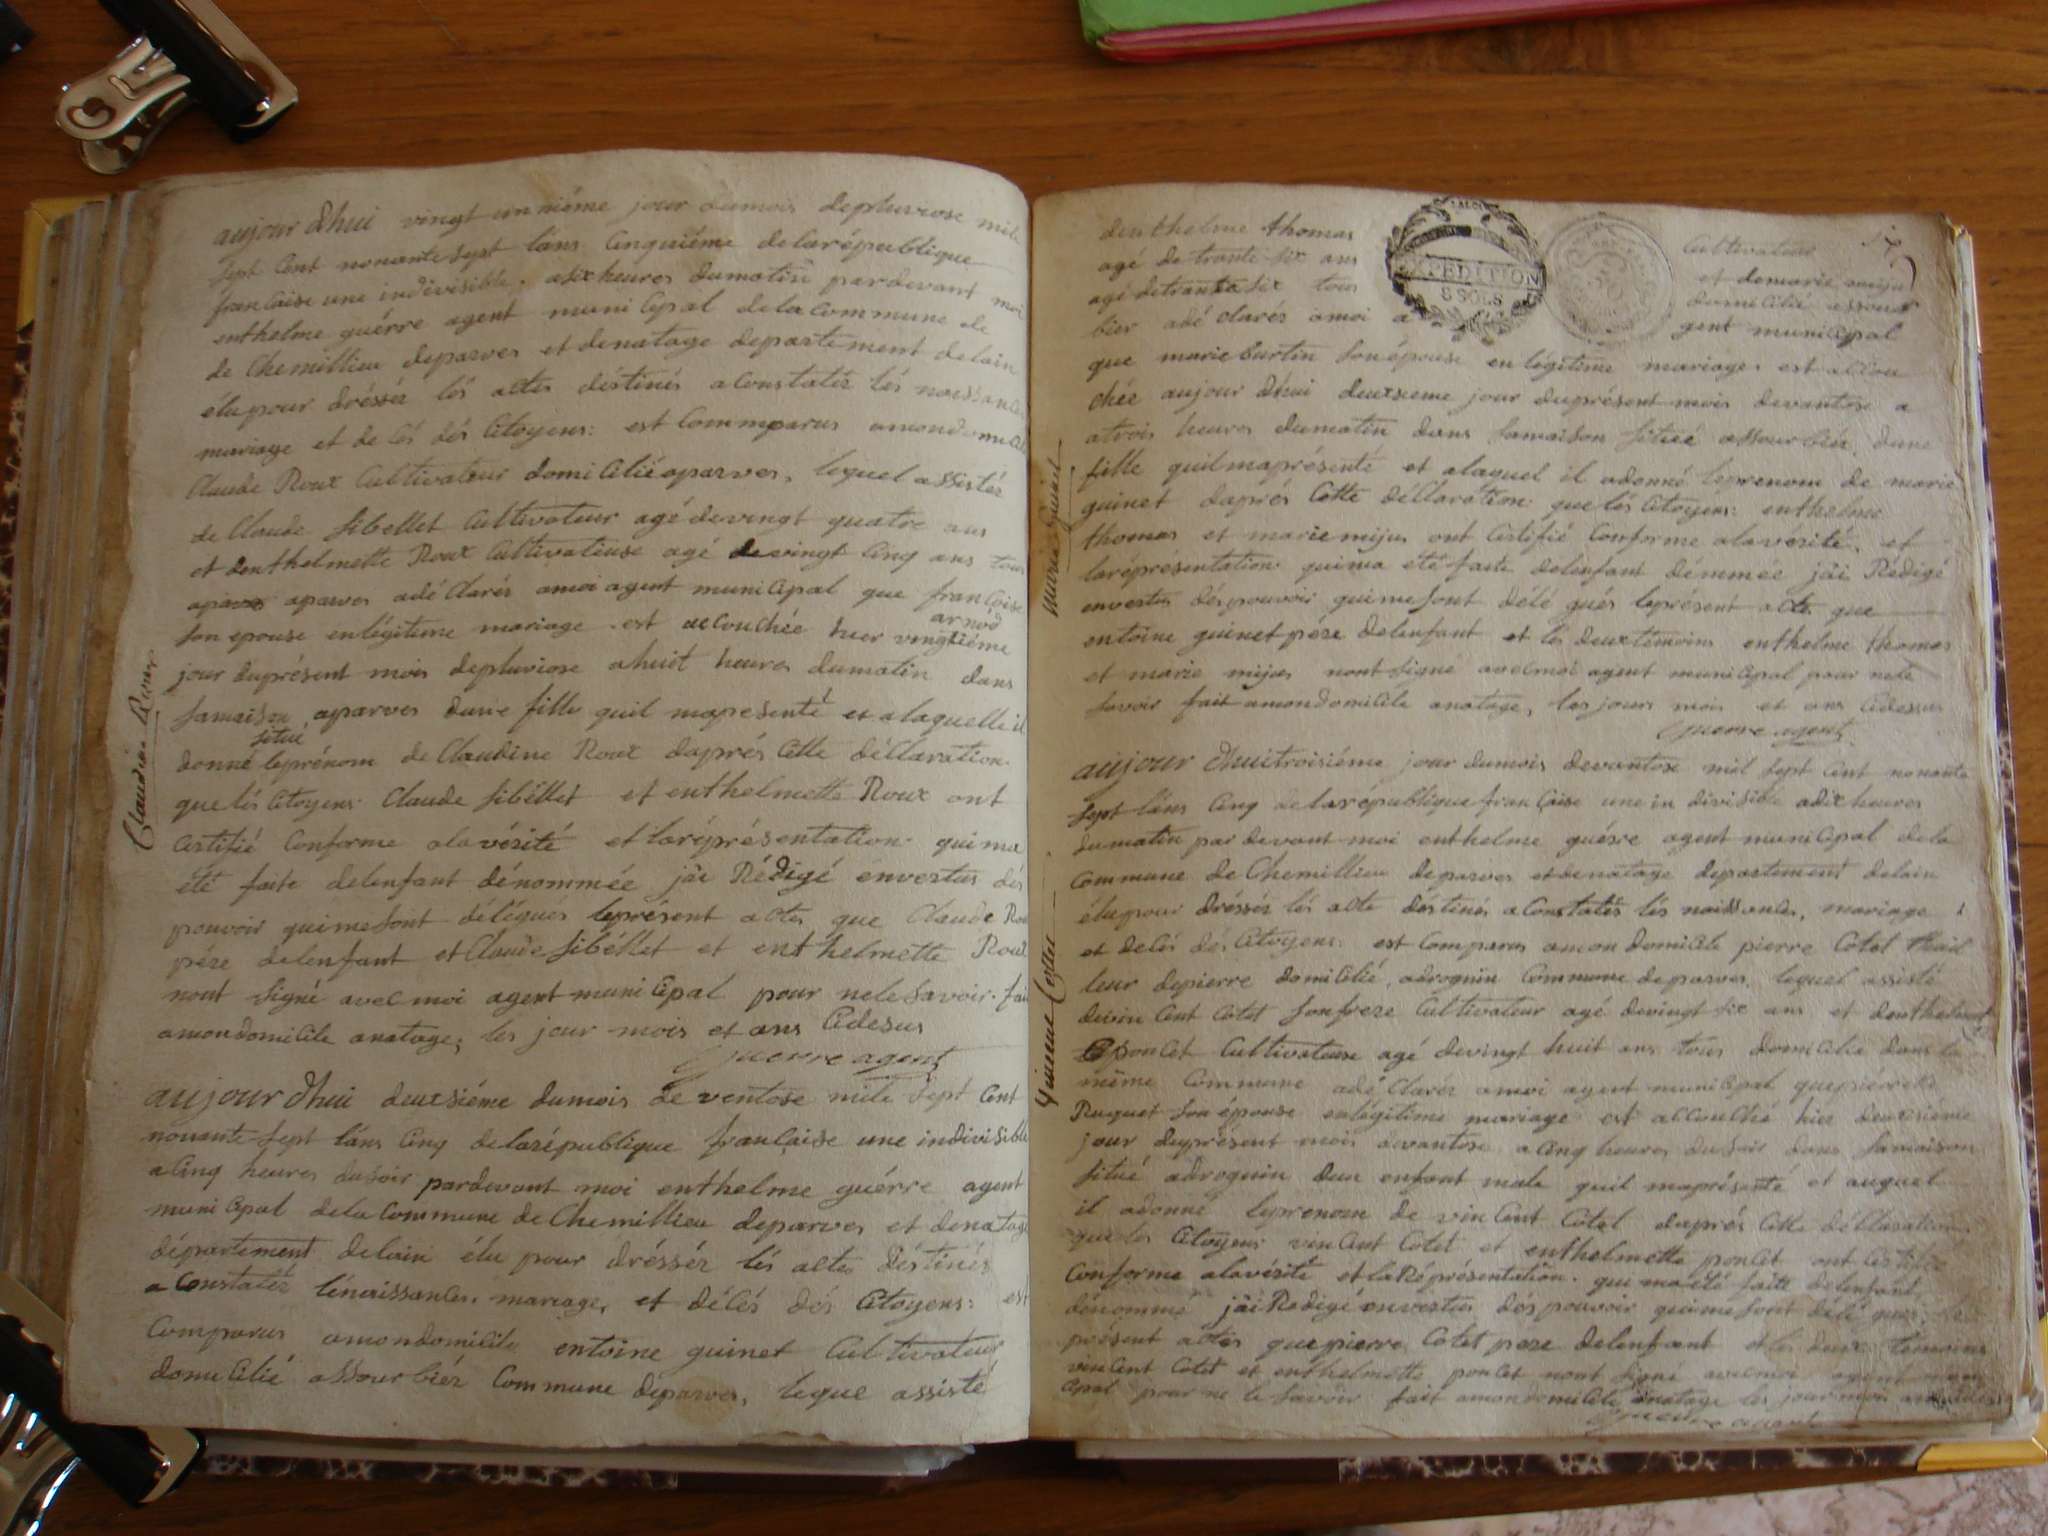 aujour dhui vingt unniéme jour dumois depluviose mile
sept Cent nonante sept lans Cinquiéme delarépublique
francaise une indivisible, asix heures dumatin pardevant moi
enthelme guérre agent muni Cipal delacommune de
de Chemillieu deparves et denatage departement delain
élupour dréssér lés actes déstinés aConstatér lés naissances
mariage et de Cés dés Citoyens: est Commparus amondomicile
Claude Roux Cultivateur domiCilié aparves, lequel assistéz
de Claude Sibellet Cultivateur agé devingt quatre ans
et denthelmette Roux Cultivateuse agé devingt Cinq ans tous
aparves adé Clarér amoi agent muni Cipal que francoise
arnod
son epouse enlégitime mariage est accouchée hier vingtiéme
jour duprésent mois depluviose ahuit heures dumatin dans
samaison aparves dune fille quil mapresenté et alaquelle il
situé
donné leprénom de Claudine Roux daprés Cette déClaration
que lés Citoyens Claude Sibéllet et enthelmette Roux ont
Certifié Conforme alavérité et laréprésentation quima
été faite delenfant dénommée jái Rédigé envertus dés
pouvoir quimesont délégués leprésent actes que Claude Roux
pére delenfant et Claude Sibéllet et enthelmette Roux
nont signé avec moi agent muni Cipal pour nele savoir fait
amondomicile anatage, les jour mois et ans Cidesus
guerre agent
Claudine Roux
aujour dhui deuxsiéme dumois de ventose mile sept Cent
nonante sept lans Cinq delarépublique francaise une indivisible
aCinq heures dusoir pardevant moi enthelme guérre agent
muni Cipal delaCommune de Chemillieu deparves et denatage
département delain élu pour dréssér lés actes déstinés
aConstatér lénaissances, mariage, et déCés dés Citoyens: est
Comparus amondomicile entoine guinet Cultivateur
domiCilié assourbiér Commune deparves, leque assisté
denthelme thomas Cultivateur
agé de trante six ans et demarie mijus
agé detrante six tous domiCilié assour
bier adé clarér amoi a gent muniCipal
EXPEDITION
8 SOLS
que marie burtin son épouse enlégitime mariage est accou
chée aujour dhui deuxsieme jour duprésent mois devantose a
atrois heures dumatin dans samaison situeé assourbiér dune
fille quilmaprésenté et alaquel il adonné leprenom de marie
guinet daprés Cette déClaration que lés Citoyens: enthelme
thomas et marie mijus ont Certifié Conforme alaverité et
laréprésentation quima été faite delenfant démmée jái Rédigé
envertus dés pouvoir quimesont délé gués leprésent acte que
entoine guinet pére delenfant et lés deux temoins enthelme thomas
et marie mijus nont signé avecmoi agent muniCipal pour nele
savoir fait amondomiCile anatage, les jours mois et ans Cidessus
guerre agent
marie guinet
aujour dhuitroisiéme jour dumois devantose mil sept Cent nonante
sept láns Cinq delarépublique francaise une in divisible adix heures
dumatin pardevant moi enthelme guérre agent muniCipal dela
Commune de Chemillieu deparves et denatage departement delain
élupour dréssér lés acte déstinés aConstatér lés naissances, mariage
et deCés dés Citoyens: est Comparus amon domicile pierre Cotet thail
leur depierre domiCilié, adroguin Commune deparves, lequel assisté
devin Cent Cotet sonfrere Cultivateur agé devingt six ans et denthelmette
ponCet Cultivateuse agé devingt huit ans tous domicilie dans la
même Commune adé Clarér amoi agent muniCipal quepiérrette
Ruquet son épouse enlégitime mariage est accouché hier deuxsiéme
jour duprésent mois devantose aCinq heures dusoir dans samaison
situé adroguin dun enfant male quil maprésenté et auquel
il adonné leprenom de vinCent Cotet daprés Cette déClaration
que les Citoyens vinCent Cotet et enthelmette ponCet ont Certifié
Conforme alavérité et la Réprésentation quima été faite delenfant
dénommé jái Rédigé envertus dés pouvoir quimesont délé gués le
présent actes que pierre Cotet pere delenfant et les deux temoins
vinCent Cotet et enthelmette ponCet nont signé avecmoi agent muni
Cipal pour ne le savoir fait amondomiCile anatage les jour mois
guerre agent